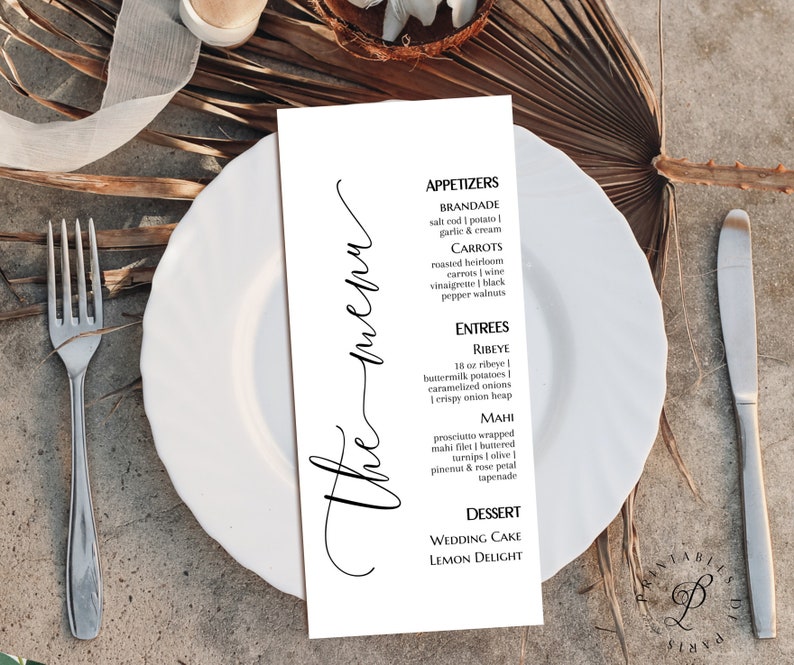 the menu
APPETIZERS
BRANDADE
salt cod | potato |
garlic & cream
CARROTS
roasted heirloom
carrots | wine
vinaigrette | black
pepper walnuts
ENTREES
RIBEYE
18 oz ribeye |
buttermilk potatoes |
caramelized onions
| crispy onion heap
MAHI
prosciutto wrapped
mahi filet | buttered
turnips | olive |
pinenut & rose petal
tapenade
DESSERT
WEDDING CAKE
LEMON DELIGHT
PRINTABLES DE PARIS
P